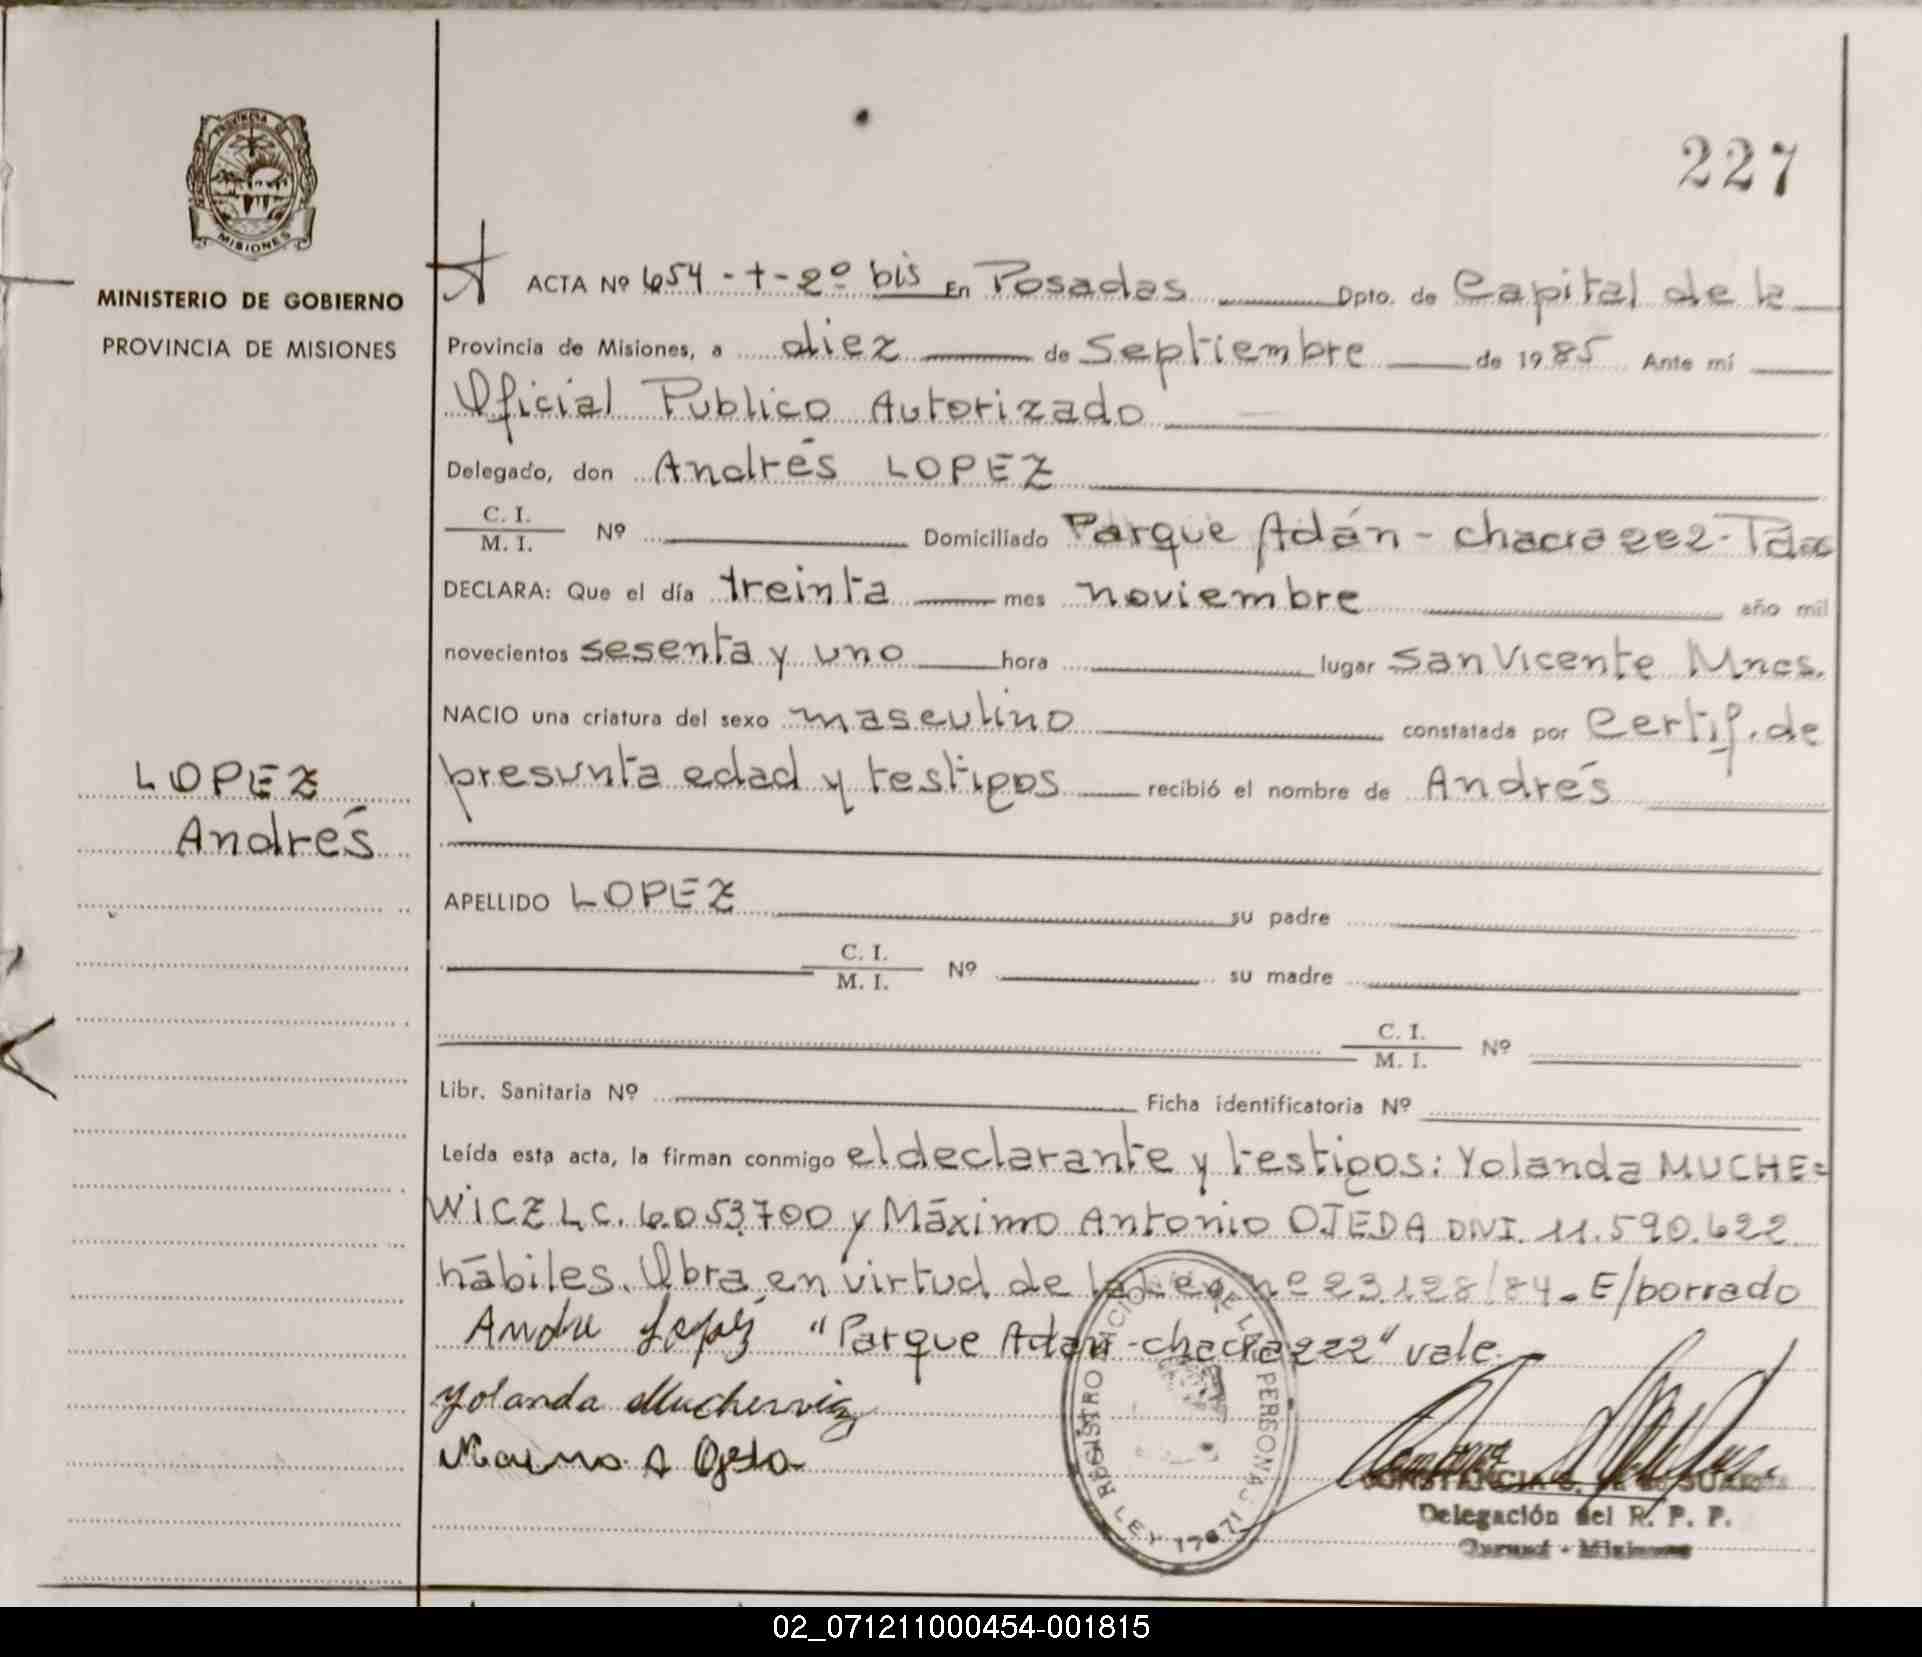 227
PROVINCIA DE
MISIONES
MINISTERIO DE GOBIERNO
PROVINCIA DE MISIONES
LOPEZ
Andrés
ACTA Nº 654 - t - 2º bis En Posadas Dpto. de Capital de la
Provincia de Misiones, a diez de Septiembre de 1985 Ante mí
Oficial Publico Autorizado
Delegado, don Andrés LOPEZ
C. I.
M. I. Nº Domiciliado Parque Adán - chacra 222 - Pdas
DECLARA: Que el día treinta mes noviembre año mil
novecientos sesenta y uno hora lugar San Vicente Mnes.
NACIO una criatura del sexo masculino constatada por Certif. de
presunta edad y testigos recibió el nombre de Andrés
APELLIDO LOPEZ su padre
C. I.
M. I. Nº su madre
C. I.
M. I. Nº
Libr. Sanitaria Nº Ficha identificatoria Nº
Leída esta acta, la firman conmigo el declarante y testigos: Yolanda MUCHE=
WICZ L.C. 6.053.700 y Máximo Antonio OJEDA DNI. 11.590.622
hábiles. Obra en virtud de la Ley nº 23.128/84. E/borrado
Andre Lopéz "Parque Adan - chacra 222" vale.
Yolanda Muchewicz
Maximo A Ojeda
REGISTRO PERSONAS LEY 17671
CONSTANCIA
Delegación del R. P. P.
Misiones
02_071211000454-001815